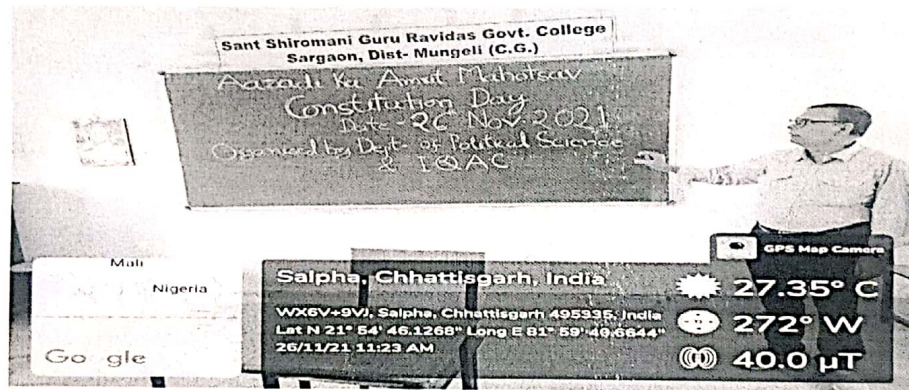 Sant Shiromani Guru Ravidas Govt. College
Sargaon, Dist- Mungeli (C.G.)
Aazadi Ka Amrit Mahotsav
Constitution Day
Date - 26 Nov. 2021
Organised by Dept. of Political Science
& IQAC
GPS Map Camera
Mali
Nigeria
Go gle
Salpha, Chhattisgarh, India
WX6V+9VJ, Salpha, Chhattisgarh 495335, India
Lat N 21° 54' 46.1268" Long E 81° 59' 40.6644"
26/11/21 11:23 AM
27.35° C
272° W
40.0 µT